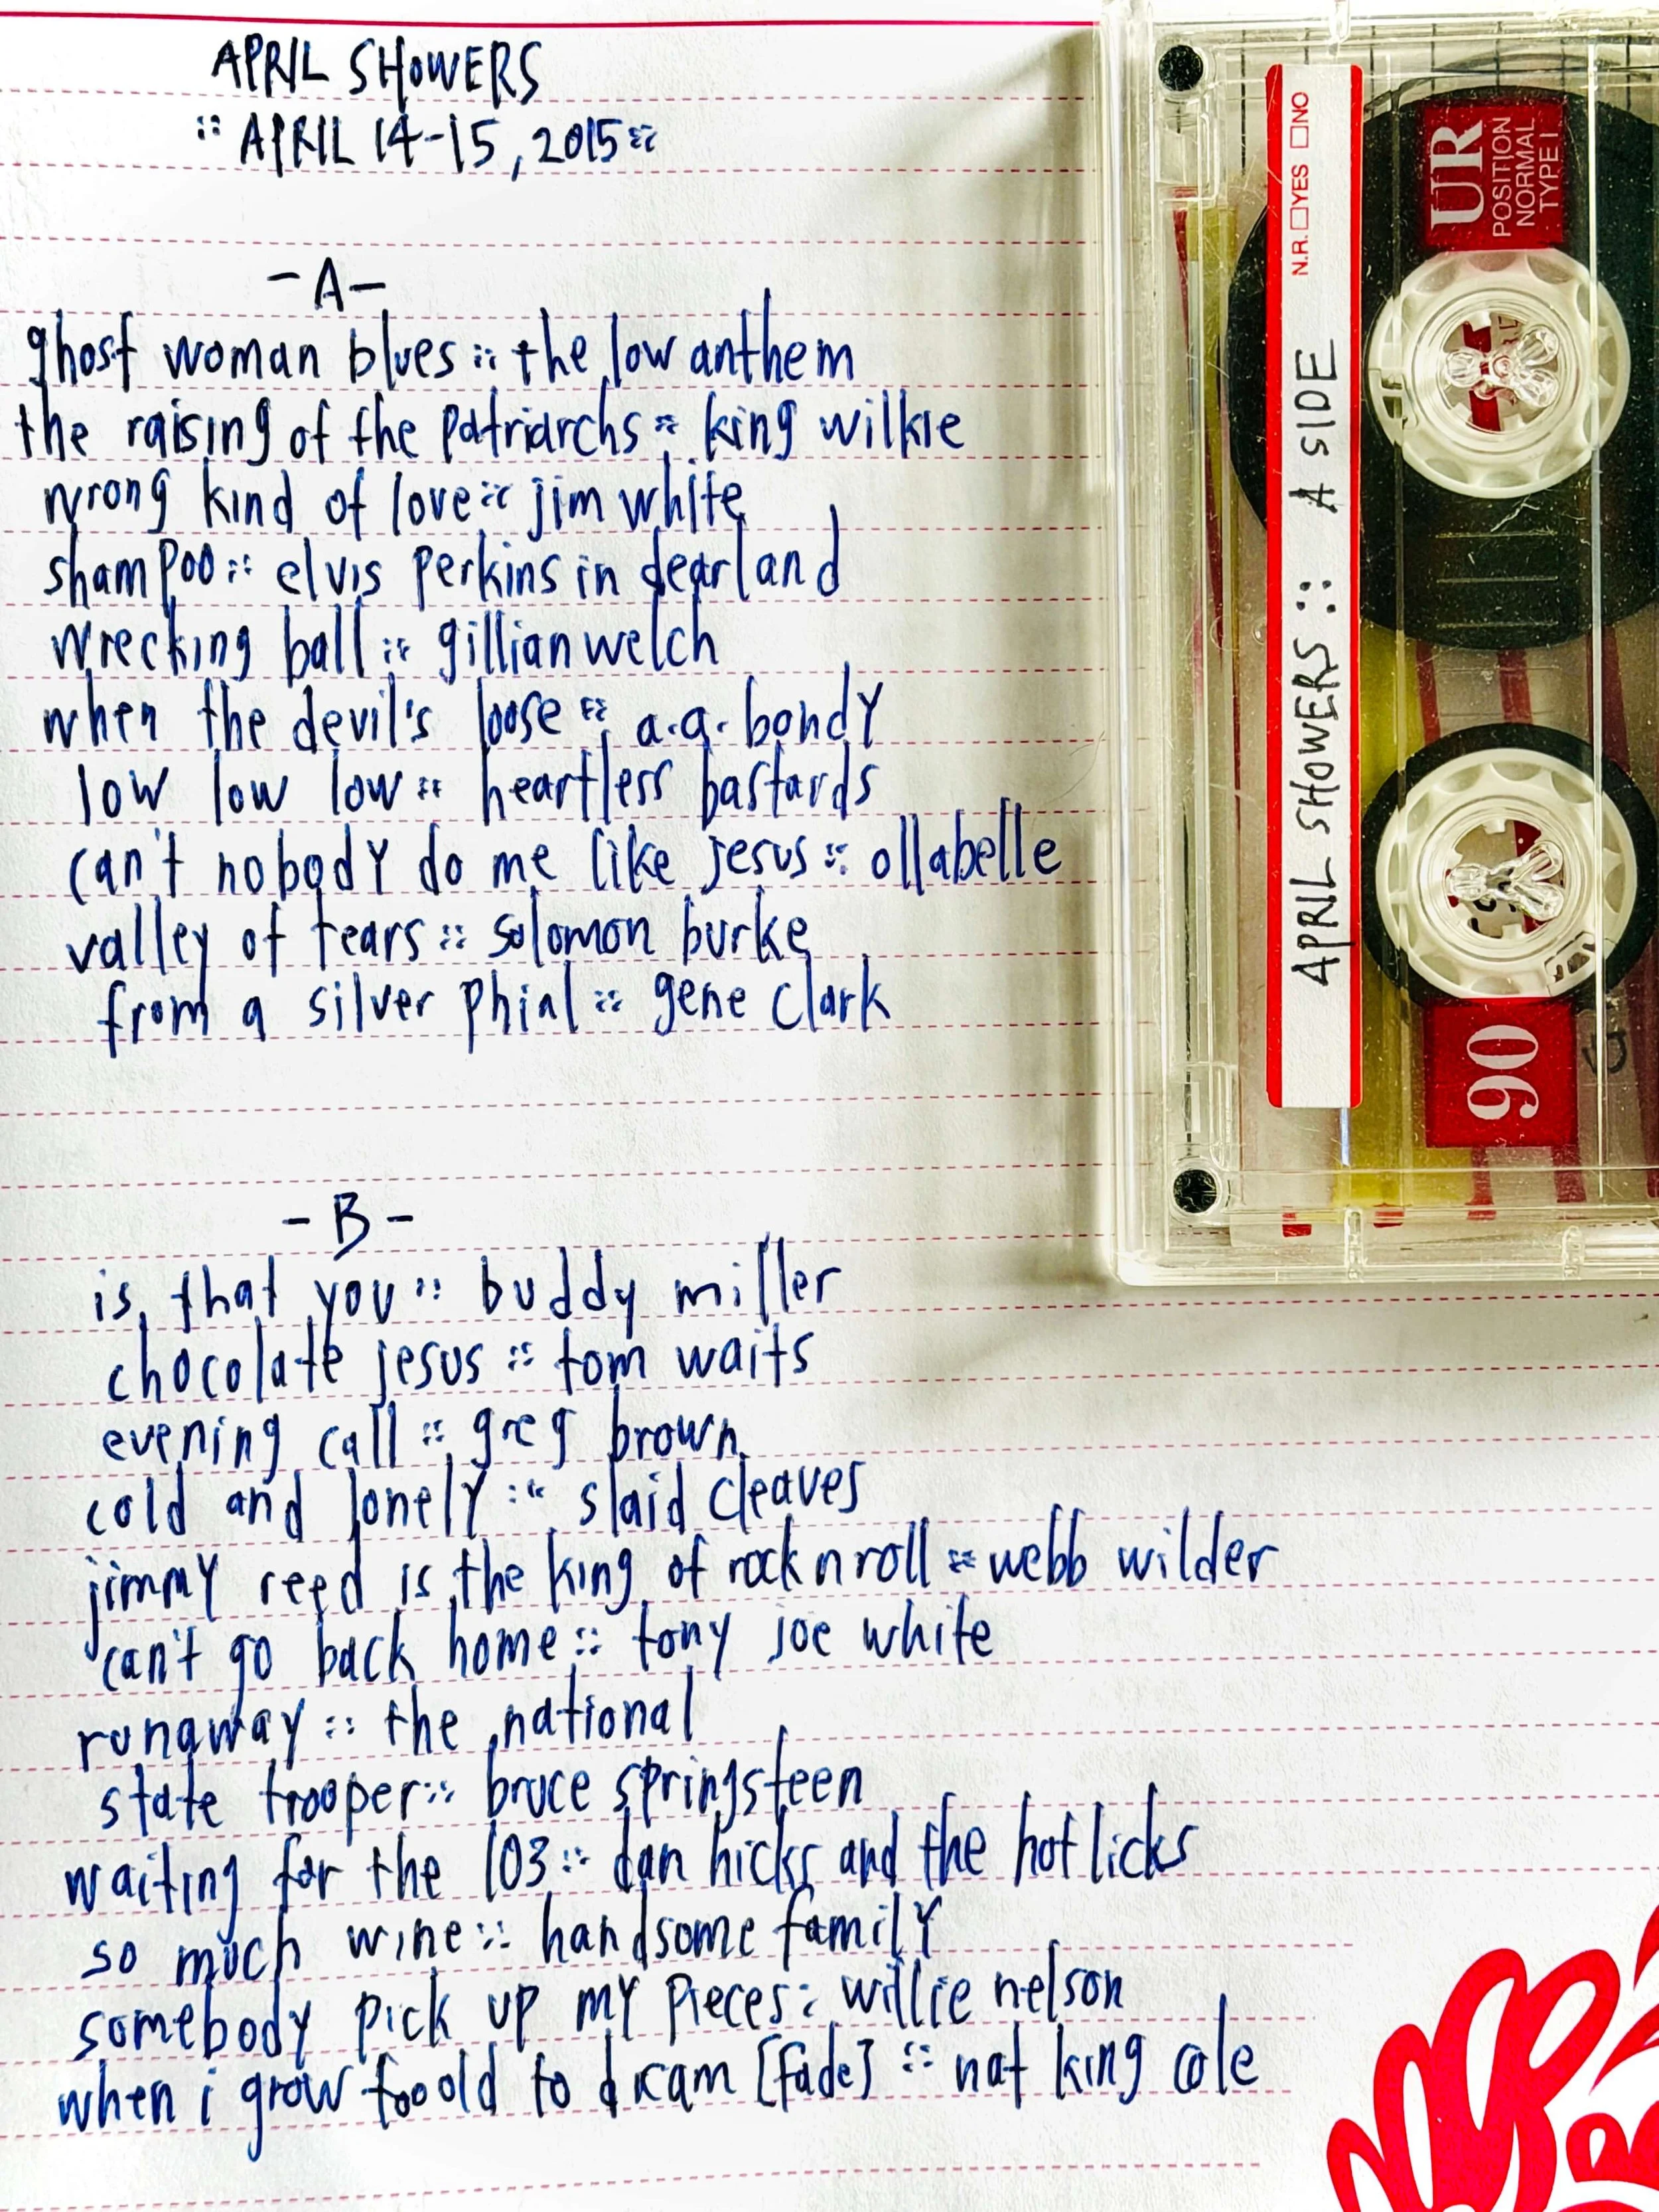 APRIL SHOWERS
:: APRIL 14-15, 2015 ::
- A -
ghost woman blues :: the low anthem
the raising of the patriarchs :: king wilkie
wrong kind of love :: jim white
shampoo :: elvis perkins in dearland
wrecking ball :: gillian welch
when the devil's loose :: a.a. bondy
low low low :: heartless bastards
can't nobody do me like jesus :: ollabelle
valley of tears :: solomon burke
from a silver phial :: gene clark
- B -
is that you :: buddy miller
chocolate jesus :: tom waits
evening call :: greg brown
cold and lonely :: slaid cleaves
jimmy reed is the king of rock n roll :: webb wilder
can't go back home :: tony joe white
runaway :: the national
state trooper :: bruce springsteen
waiting for the 103 :: dan hicks and the hot licks
so much wine :: handsome family
somebody pick up my pieces : willie nelson
when i grow too old to dream [fade] :: nat king cole
N.R. □YES □NO
APRIL SHOWERS :: A SIDE
UR
POSITION
NORMAL
TYPE I
90